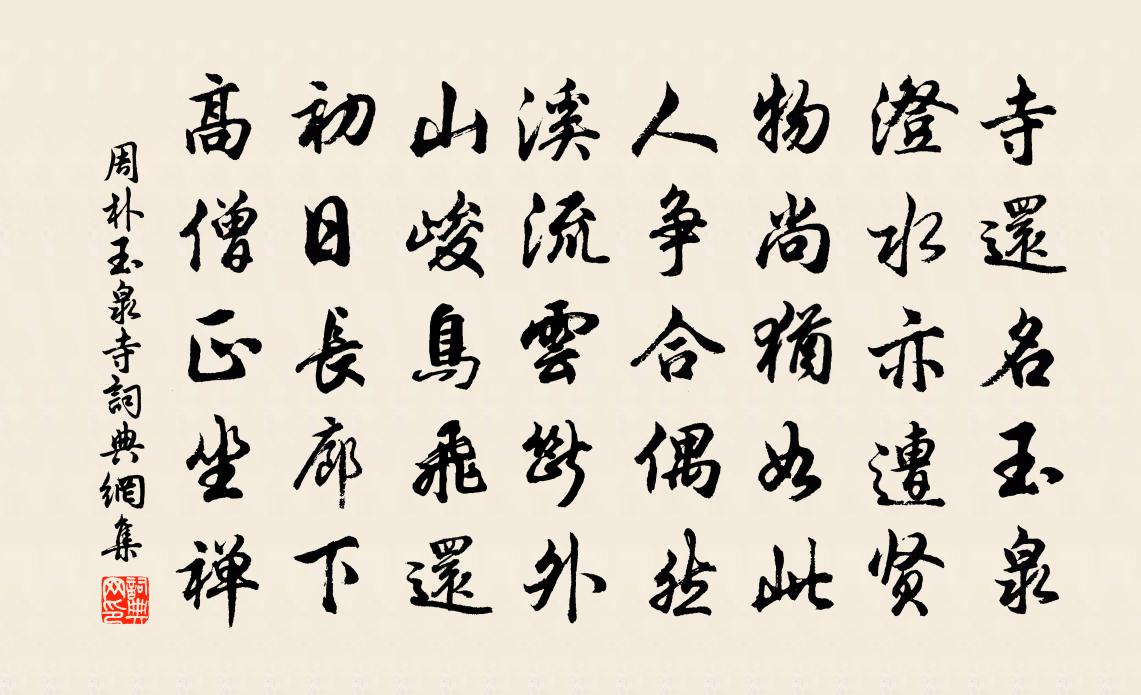 寺還名玉泉
澄水亦遭贤
物尚猶如此
人争合偶然
溪流雲斷外
山峻鳥飛還
初日長廊下
高僧正坐禅
周朴玉泉寺詞典網集